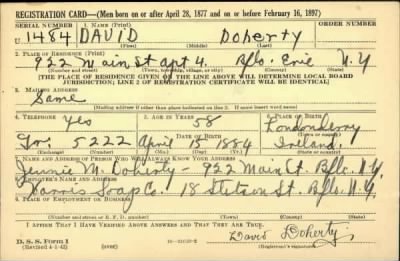 REGISTRATION CARD—(Men born on or after April 28, 1877 and on or before February 16, 1897)
SERIAL NUMBER 1. NAME (Print) ORDER NUMBER
U 1484 DAVID Doherty
(First) (Middle) (Last)
2. PLACE OF RESIDENCE (Print)
922 Main St apt 4. Bflo. Erie N.Y
(Number and street) (Town, township, village, or city) (County) (State)
[THE PLACE OF RESIDENCE GIVEN ON THE LINE ABOVE WILL DETERMINE LOCAL BOARD
JURISDICTION; LINE 2 OF REGISTRATION CERTIFICATE WILL BE IDENTICAL]
3. MAILING ADDRESS
Same
(Mailing address if other than place indicated on line 2. If same insert word same)
4. TELEPHONE 5. AGE IN YEARS 6. PLACE OF BIRTH
yes 58 Londonderry
DATE OF BIRTH
5222 April 15 1884 Ireland.
(Exchange) (Number) (Mo.) (Day) (Yr.) (State or country)
7. NAME AND ADDRESS OF PERSON WHO WILL ALWAYS KNOW YOUR ADDRESS
Jennie M. Doherty - 922 Main St. Bflo. N.Y.
8. EMPLOYER'S NAME AND ADDRESS
Harris Soap Co. 18 Stetson St. Bflo. N.Y.
9. PLACE OF EMPLOYMENT OR BUSINESS
(Number and street or R. F. D. number) (Town) (County) (State)
I AFFIRM THAT I HAVE VERIFIED ABOVE ANSWERS AND THAT THEY ARE TRUE.
D. S. S. Form 1
(Revised 4-1-42) (over) David Doherty
(Registrant's signature)